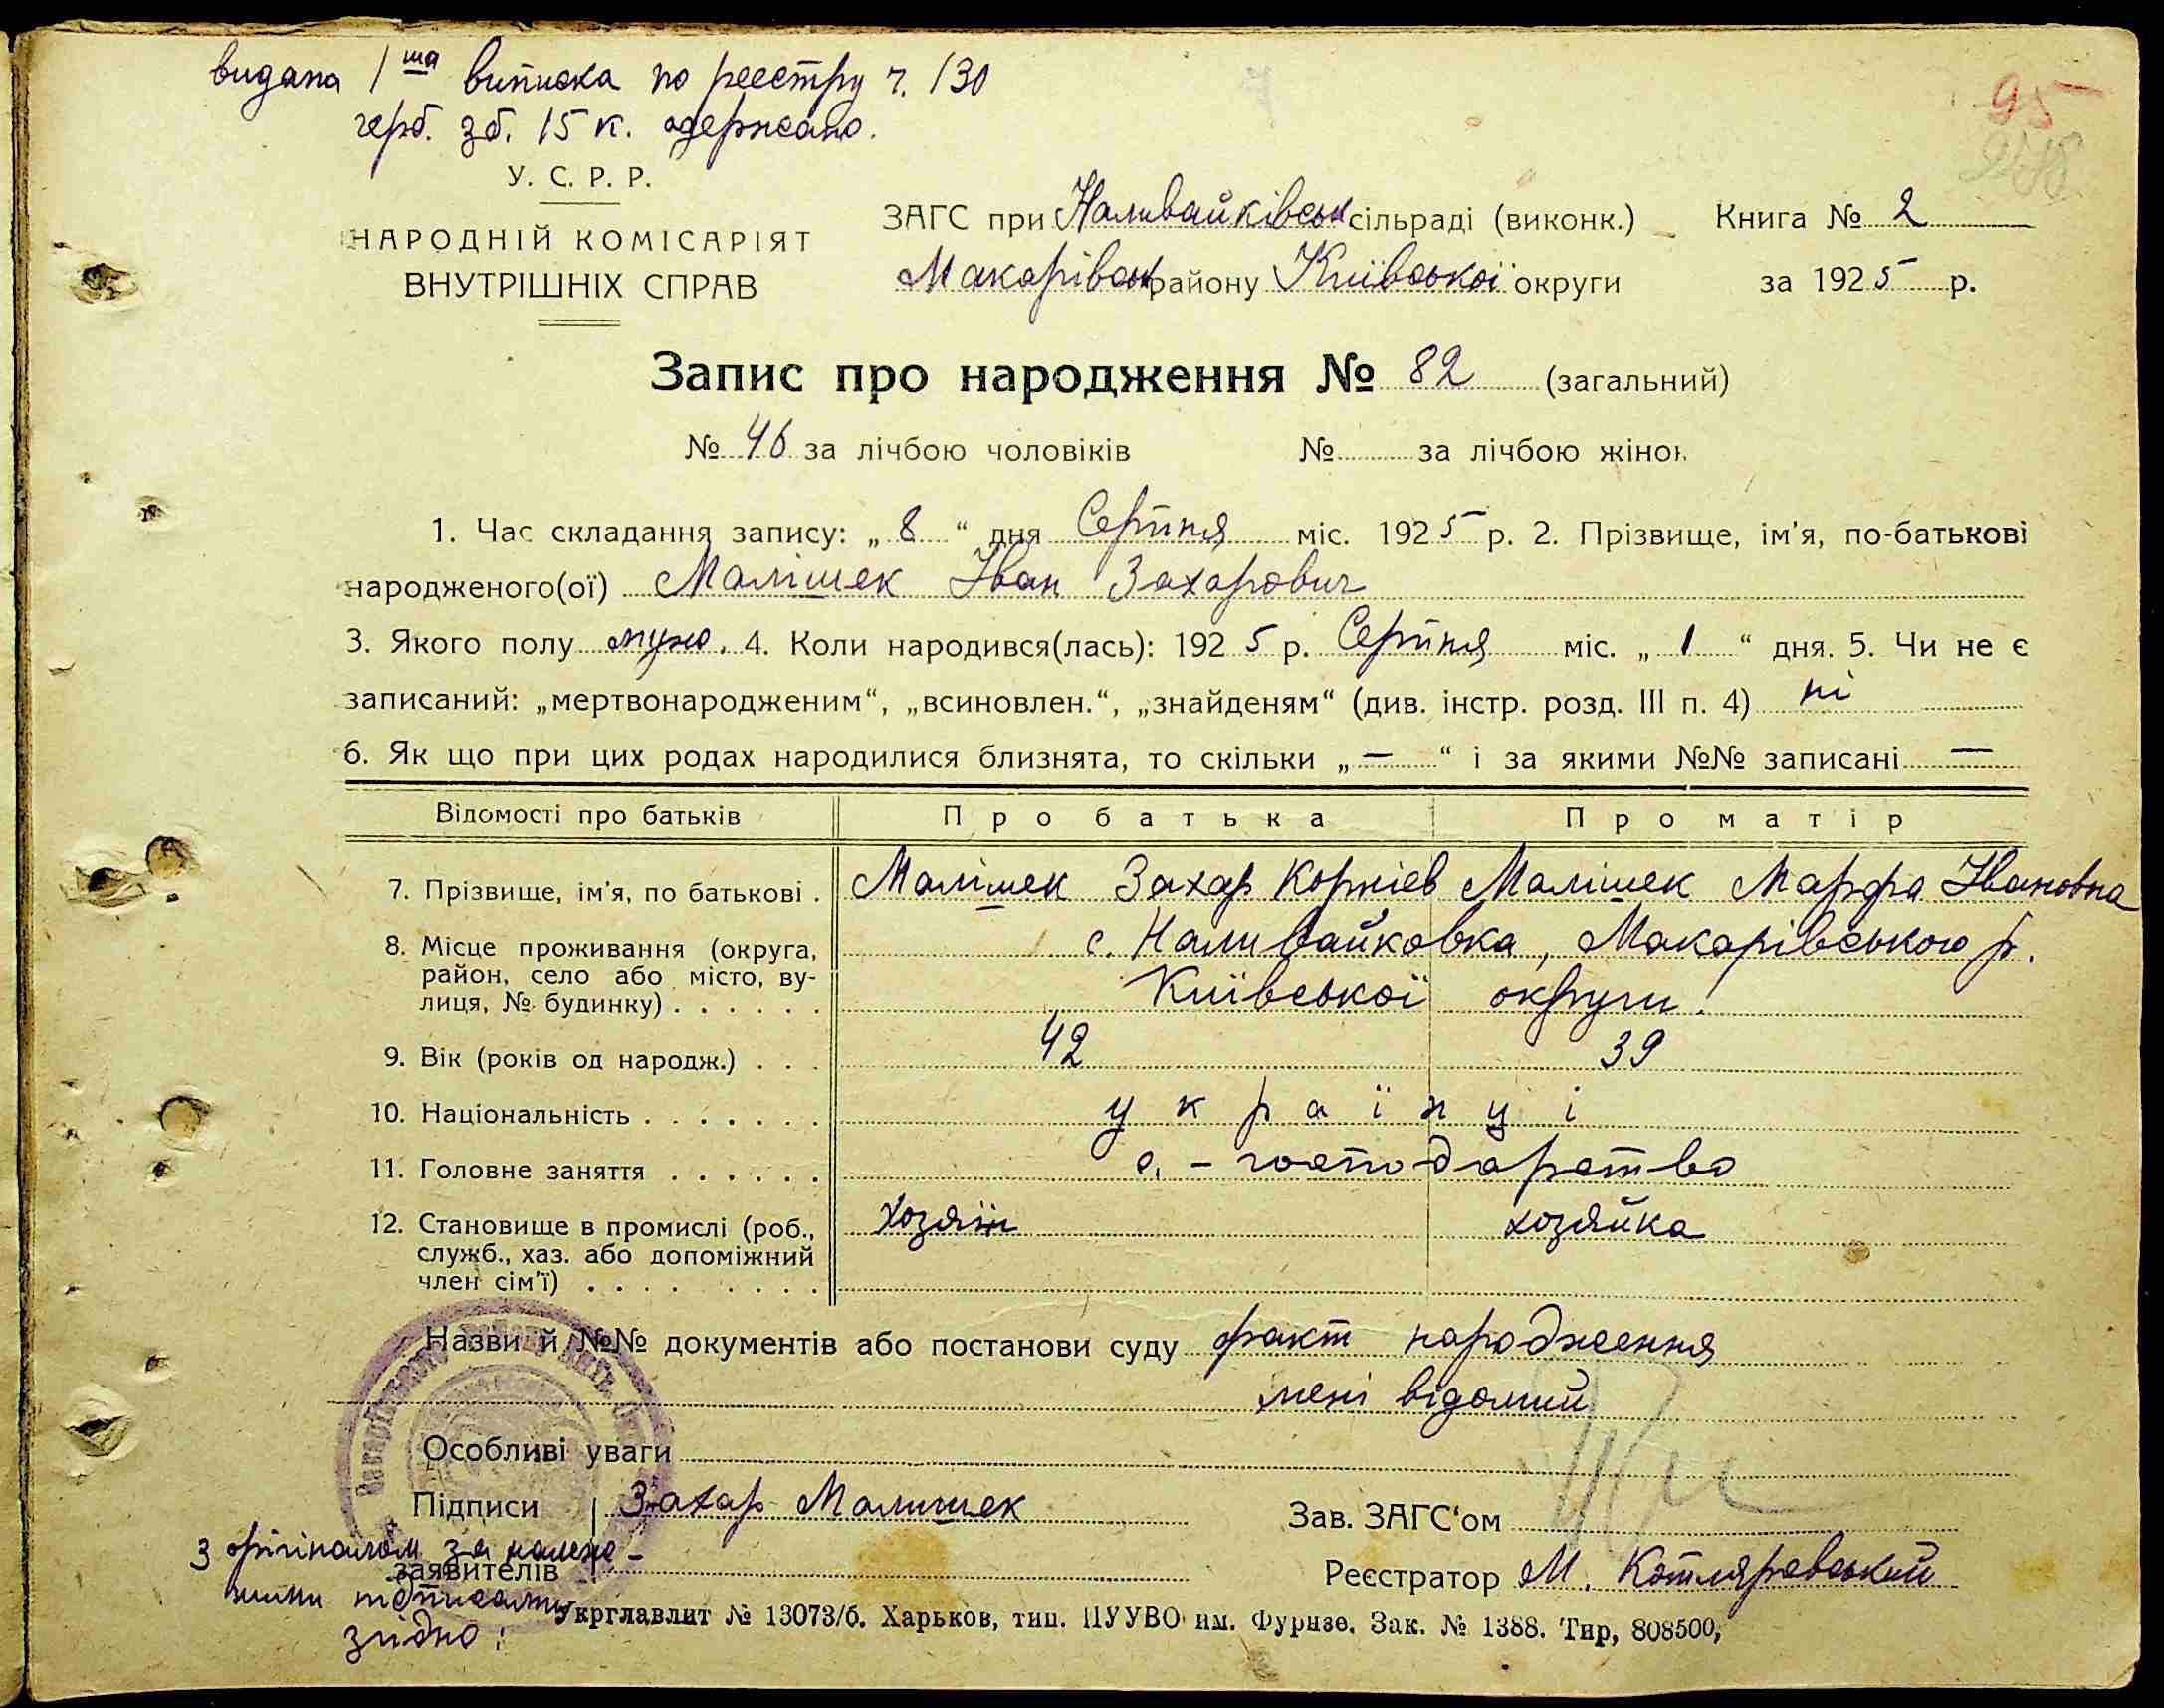 видана 1ша виписка по реєстру ч. 130
герб. зб. 15 к. одержано.
95
У. С. Р. Р.
НАРОДНІЙ КОМІСАРІЯТ
ВНУТРІШНІХ СПРАВ
ЗАГС при Наливайківськ сільраді (виконк.) Книга № 2
Макарівськ району Київської округи за 1925 р.
Запис про народження № 82 (загальний)
№ 46 за лічбою чоловіків № за лічбою жінок
1. Час складання запису: „ 8 “ дня Серпня міс. 1925 р. 2. Прізвище, ім'я, по-батькові
народженого(ої) Малішек Іван Захарович
3. Якого полу муж. 4. Коли народився(лась): 1925 р. Серпня міс. „ 1 “ дня. 5. Чи не є
записаний: „мертвонародженим“, „всиновлен.“, „знайденям“ (див. інстр. розд. III п. 4) ні
6. Як що при цих родах народилися близнята, то скільки „ — “ і за якими №№ записані —
Відомості про батьків Про батька Про матір
7. Прізвище, ім'я, по батькові . Малішек Захар Корнієв Малішек Марфа Івановна
8. Місце проживання (округа, с. Наливайковка, Макарівського р.
район, село або місто, ву-
лиця, № будинку) . . . . . . Київської округи.
9. Вік (років од народж.) . . . 42 39
10. Національність . . . . . . . українці
11. Головне заняття . . . . . . с. - господарство
12. Становище в промислі (роб., хозяїн хозяйка
служб., хаз. або допоміжний
член сім'ї) . . . . . . . .
Назви й №№ документів або постанови суду факт народження
мені відомий
Особливі уваги
Підписи Захар Малишек Зав. ЗАГС'ом
заявителів Реєстратор М. Котляревський
З орігіналом за належ-
ними підписами
згідно:
Укрглавлит № 13073/б. Харьков, тип. ПУУВО им. Фурнзе. Зак. № 1388. Тир, 808500,